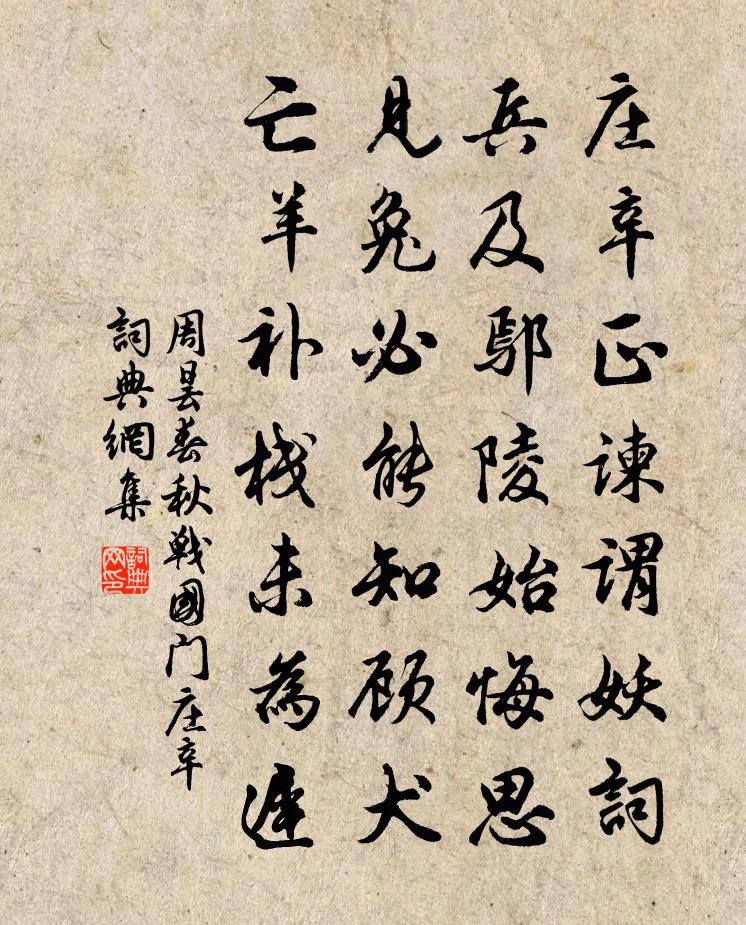 庄辛正谏谓妖词
兵及鄢陵始悔思
见兔必能知顾犬
亡羊补栈未为遲
周昙春秋戦國门庄辛
詞典網集
詞典網印